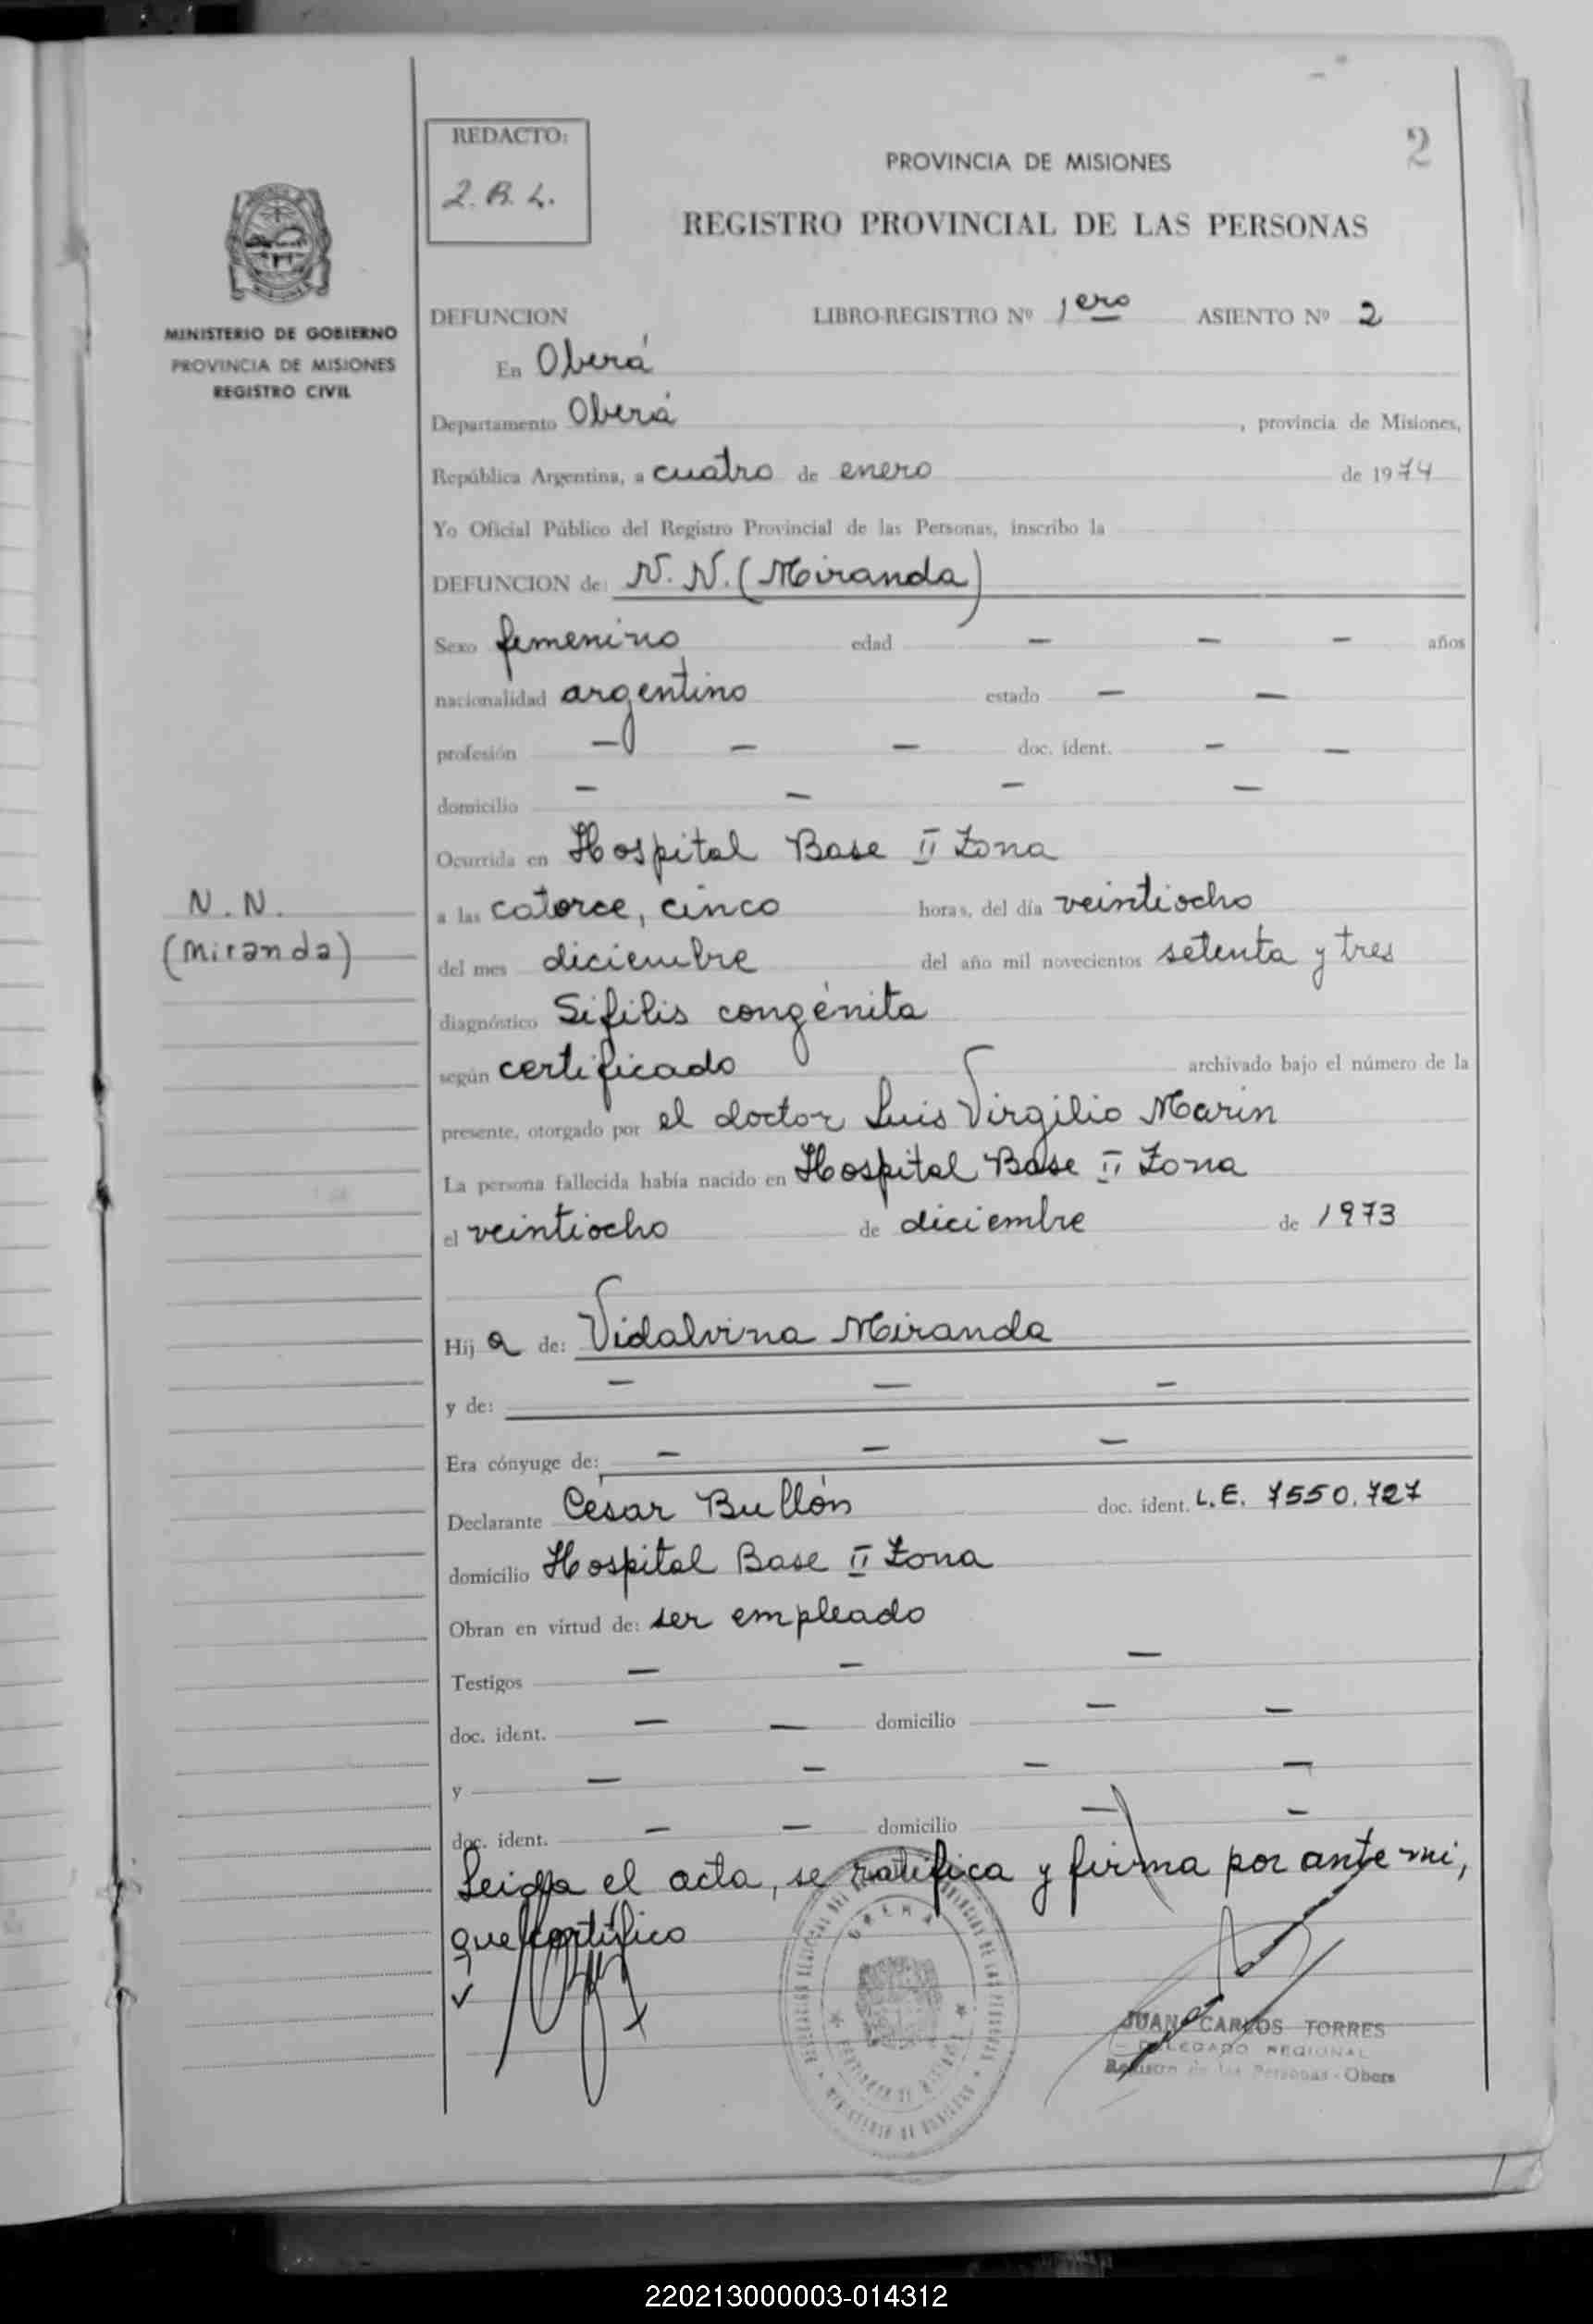 REDACTO:
Z. B. L.
2
PROVINCIA DE MISIONES
REGISTRO PROVINCIAL DE LAS PERSONAS
MINISTERIO DE GOBIERNO
PROVINCIA DE MISIONES
REGISTRO CIVIL
DEFUNCION LIBRO-REGISTRO Nº 1ero ASIENTO Nº 2
En Oberá
Departamento Oberá , provincia de Misiones,
República Argentina, a cuatro de enero de 1974
Yo Oficial Público del Registro Provincial de las Personas, inscribo la
DEFUNCION de: N. N. (Miranda)
Sexo femenino edad — — — años
nacionalidad argentino estado — —
profesión — — — doc. ident. — —
domicilio — — — —
Ocurrida en Hospital Base II Zona
N. N.
(Miranda)
a las catorce, cinco horas, del día veintiocho
del mes diciembre del año mil novecientos setenta y tres
diagnóstico Sífilis congénita
según certificado archivado bajo el número de la
presente, otorgado por el doctor Luis Virgilio Marin
La persona fallecida había nacido en Hospital Base II Zona
el veintiocho de diciembre de 1973
Hij a de: Vidalvina Miranda
y de: — — —
Era cónyuge de: — — —
Declarante César Bullón doc. ident. L.E. 7550.727
domicilio Hospital Base II Zona
Obran en virtud de: ser empleado
Testigos — — —
doc. ident. — — domicilio — —
y — — — —
doc. ident. — — domicilio — —
Leida el acta, se ratifica y firma por ante mi,
que certifico
OBERA
PROVINCIA DE MISIONES
MINISTERIO DE GOBIERNO
JUAN CARLOS TORRES
DELEGADO REGIONAL
Registro de las Personas - Obera
220213000003-014312